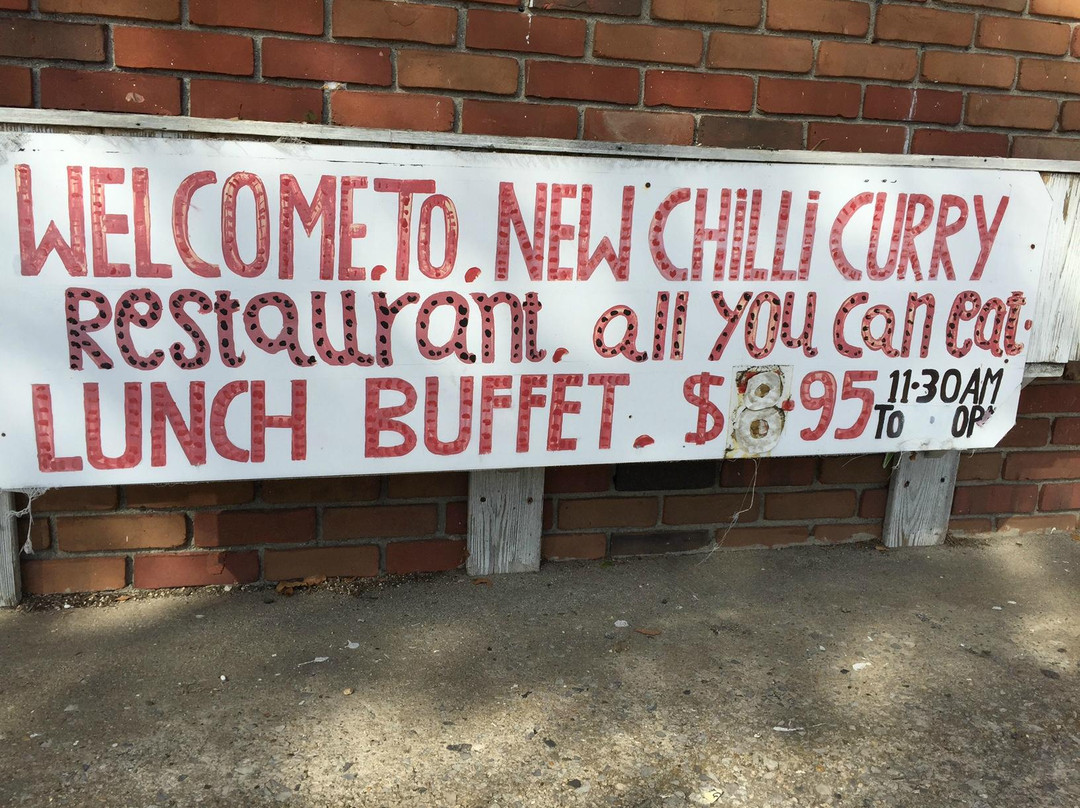 WELCOME.TO. NEW CHILLI CURRY
Restaurant. all you can eat.
LUNCH BUFFET. $8.95 11·30AM
TO